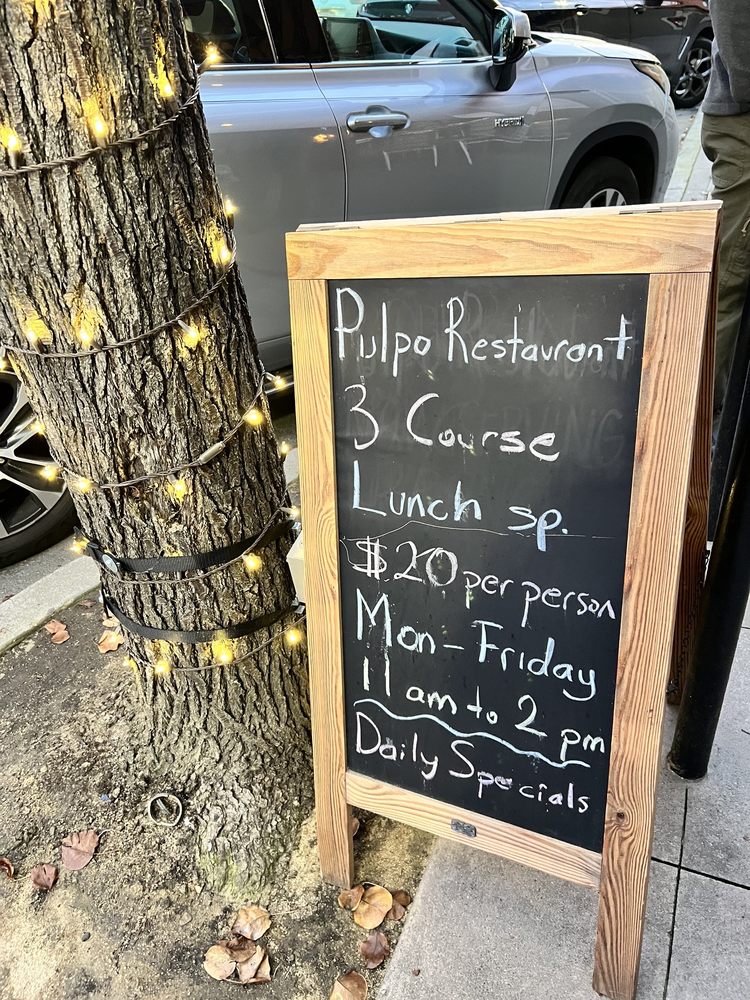 HYBRID
Pulpo Restaurant
3 Course
Lunch sp.
$20 per person
Mon-Friday
11 am to 2 pm
Daily Specials